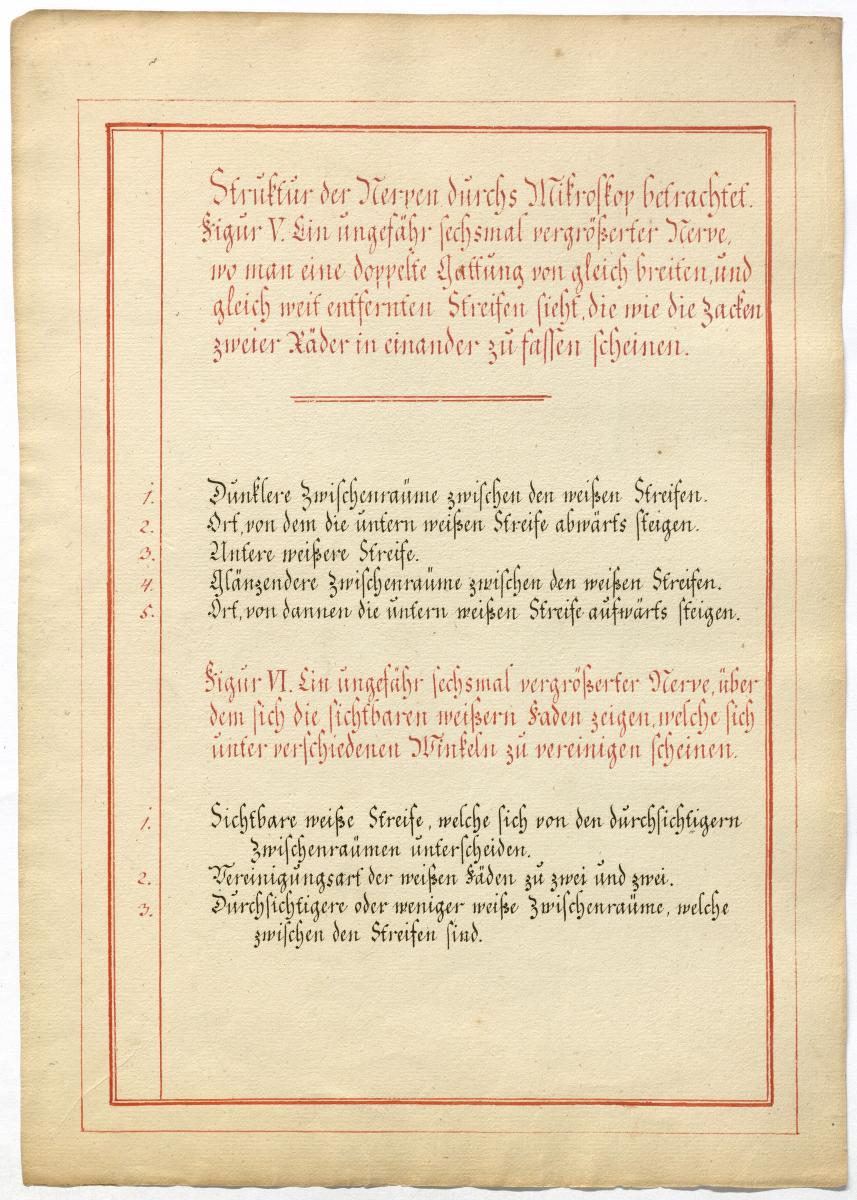 Struktur der Nerven durchs Mikroskop betrachtet.
Figur V. Ein ungefähr sechsmal vergrößerter Nerve,
wo man eine doppelte Gattung von gleich breiten, und
gleich weit entfernten Streifen sieht, die wie die Zacken
zweier Räder in einander zu fassen scheinen.
1. Dunklere Zwischenraüme zwischen den weißen Streifen.
2. Ort, von dem die untern weißen Streife abwärts steigen.
3. Untere weißere Streife.
4. Glänzendere Zwischenraüme zwischen den weißen Streifen.
5. Ort, von dannen die untern weißen Streife aufwärts steigen.
Figur VI. Ein ungefähr sechsmal vergrößerter Nerve, über
dem sich die sichtbaren weißern Faden zeigen, welche sich
unter verschiedenen Winkeln zu vereinigen scheinen.
1. Sichtbare weiße Streife, welche sich von den durchsichtigern
Zwischenraümen unterscheiden.
2. Vereinigungsart der weißen Fäden zu zwei und zwei.
3. Durchsichtigere oder weniger weiße Zwischenraüme, welche
zwischen den Streifen sind.